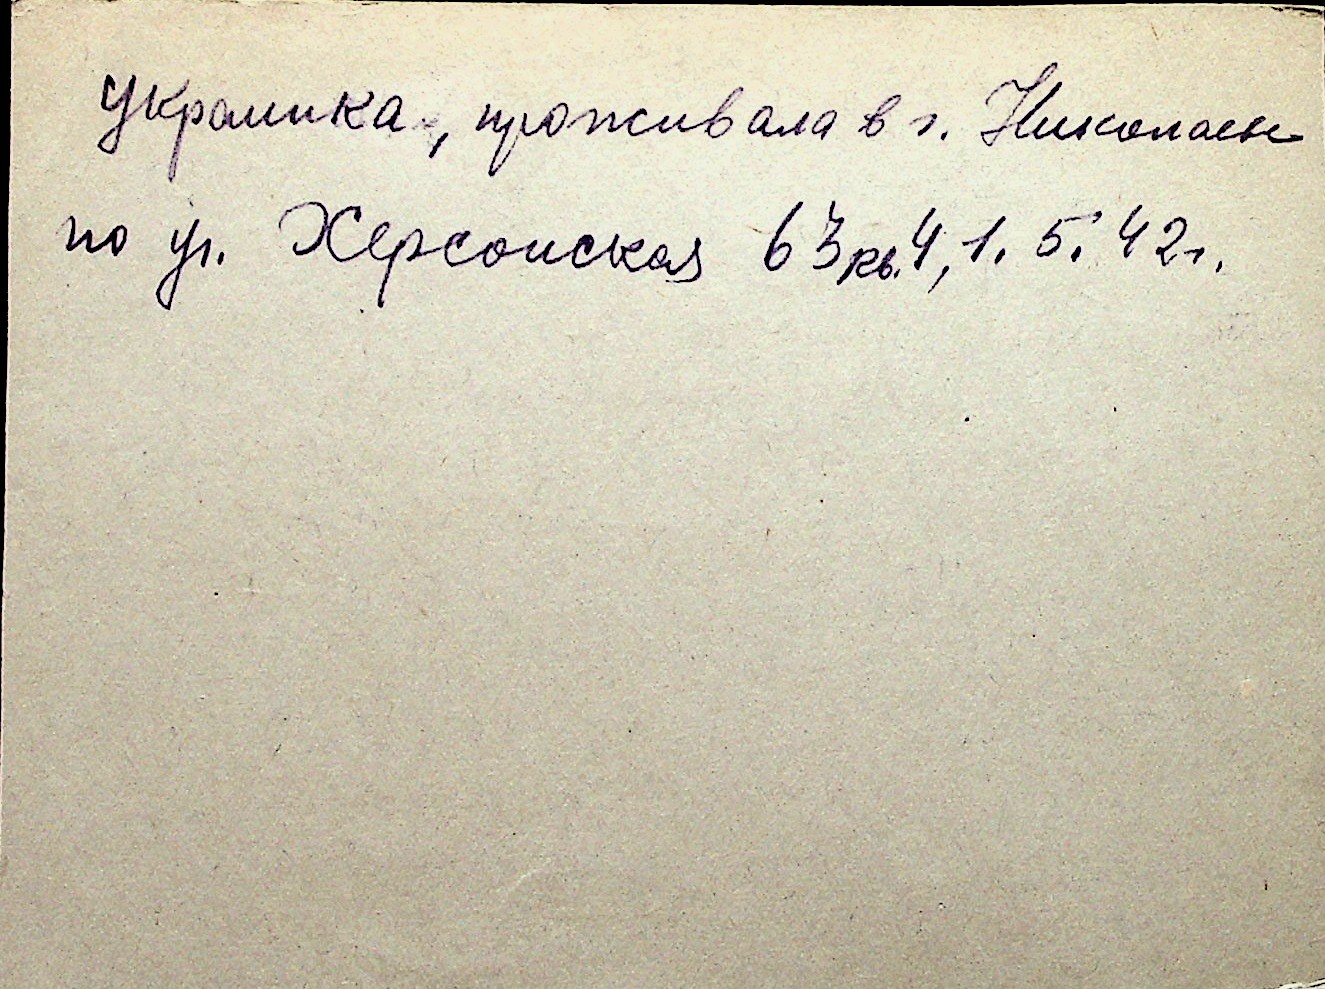 Украинка, проживала в г. Николаеве
по ул. Херсонская 63 кв. 4, 1. 5. 42 г.